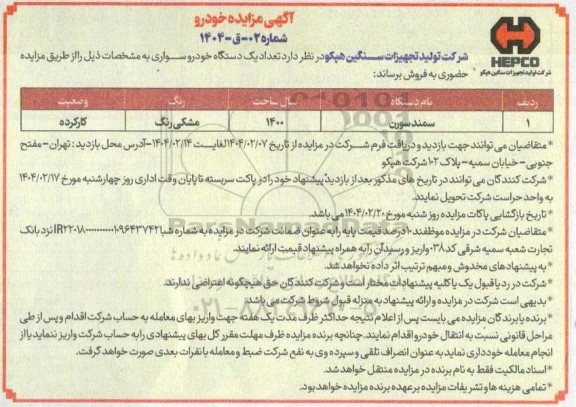 آگهی مزایده خودرو
شماره ۰۲-ق-۱۴۰۴
HEPCO
شرکت تولید تجهیزات سنگین هپکو
شرکت تولید تجهیزات سنگین هپکو در نظر دارد تعداد یک دستگاه خودرو سواری به مشخصات ذیل را از طریق مزایده
حضوری به فروش برساند:
ردیف نام دستگاه سال ساخت رنگ وضعیت
۱ سمند سورن ۱۴۰۰ مشکی رنگ کارکرده
* متقاضیان می توانند جهت بازدید و دریافت فرم شرکت در مزایده از تاریخ ۱۴۰۴/۰۲/۰۷ لغایت ۱۴۰۴/۰۲/۱۴ -آدرس محل بازدید : تهران - مفتح
جنوبی - خیابان سمیه - پلاک ۱۰۲ شرکت هپکو
* شرکت کنندگان می توانند در تاریخ های مذکور بعد از بازدید پیشنهاد خود را در پاکت سربسته تا پایان وقت اداری روز چهارشنبه مورخ ۱۴۰۴/۰۲/۱۷
به واحد حراست شرکت تحویل نمایند.
* تاریخ بازگشایی پاکات مزایده روز شنبه مورخ ۱۴۰۴/۰۲/۲۰ می باشد.
* متقاضیان شرکت در مزایده موظفند ۱۰ درصد قیمت پایه را به عنوان ضمانت شرکت در مزایده به شماره شبا نزد بانک
تجارت شعبه سمیه شرقی کد ۰۳۸ واریز و رسید آن را به همراه پیشنهاد قیمت ارائه نمایند.
* به پیشنهادهای مخدوش و مبهم ترتیب اثر داده نخواهد شد.
* شرکت در رد یا قبول یک یا کلیه پیشنهادات مختار است و شرکت کنندگان حق هیچگونه اعتراضی ندارند.
* بدیهی است شرکت در مزایده و ارائه پیشنهاد به منزله قبول شروط شرکت می باشد.
* برنده یا برندگان مزایده می بایست پس از اعلام نتیجه حداکثر ظرف مدت یک هفته جهت واریز بهای معامله به حساب شرکت اقدام و پس از طی
مراحل قانونی نسبت به انتقال خودرو اقدام نمایند. چنانچه برنده مزایده ظرف مهلت مقرر کل بهای پیشنهادی را به حساب شرکت واریز ننماید یا از
انجام معامله خودداری نماید به عنوان انصراف تلقی و سپرده وی به نفع شرکت ضبط و معامله با نفرات بعدی صورت خواهد گرفت.
* اسناد مالکیت فقط به نام برنده در مزایده منتقل خواهد شد.
* تمامی هزینه ها و تشریفات مزایده بر عهده برنده مزایده خواهد بود.